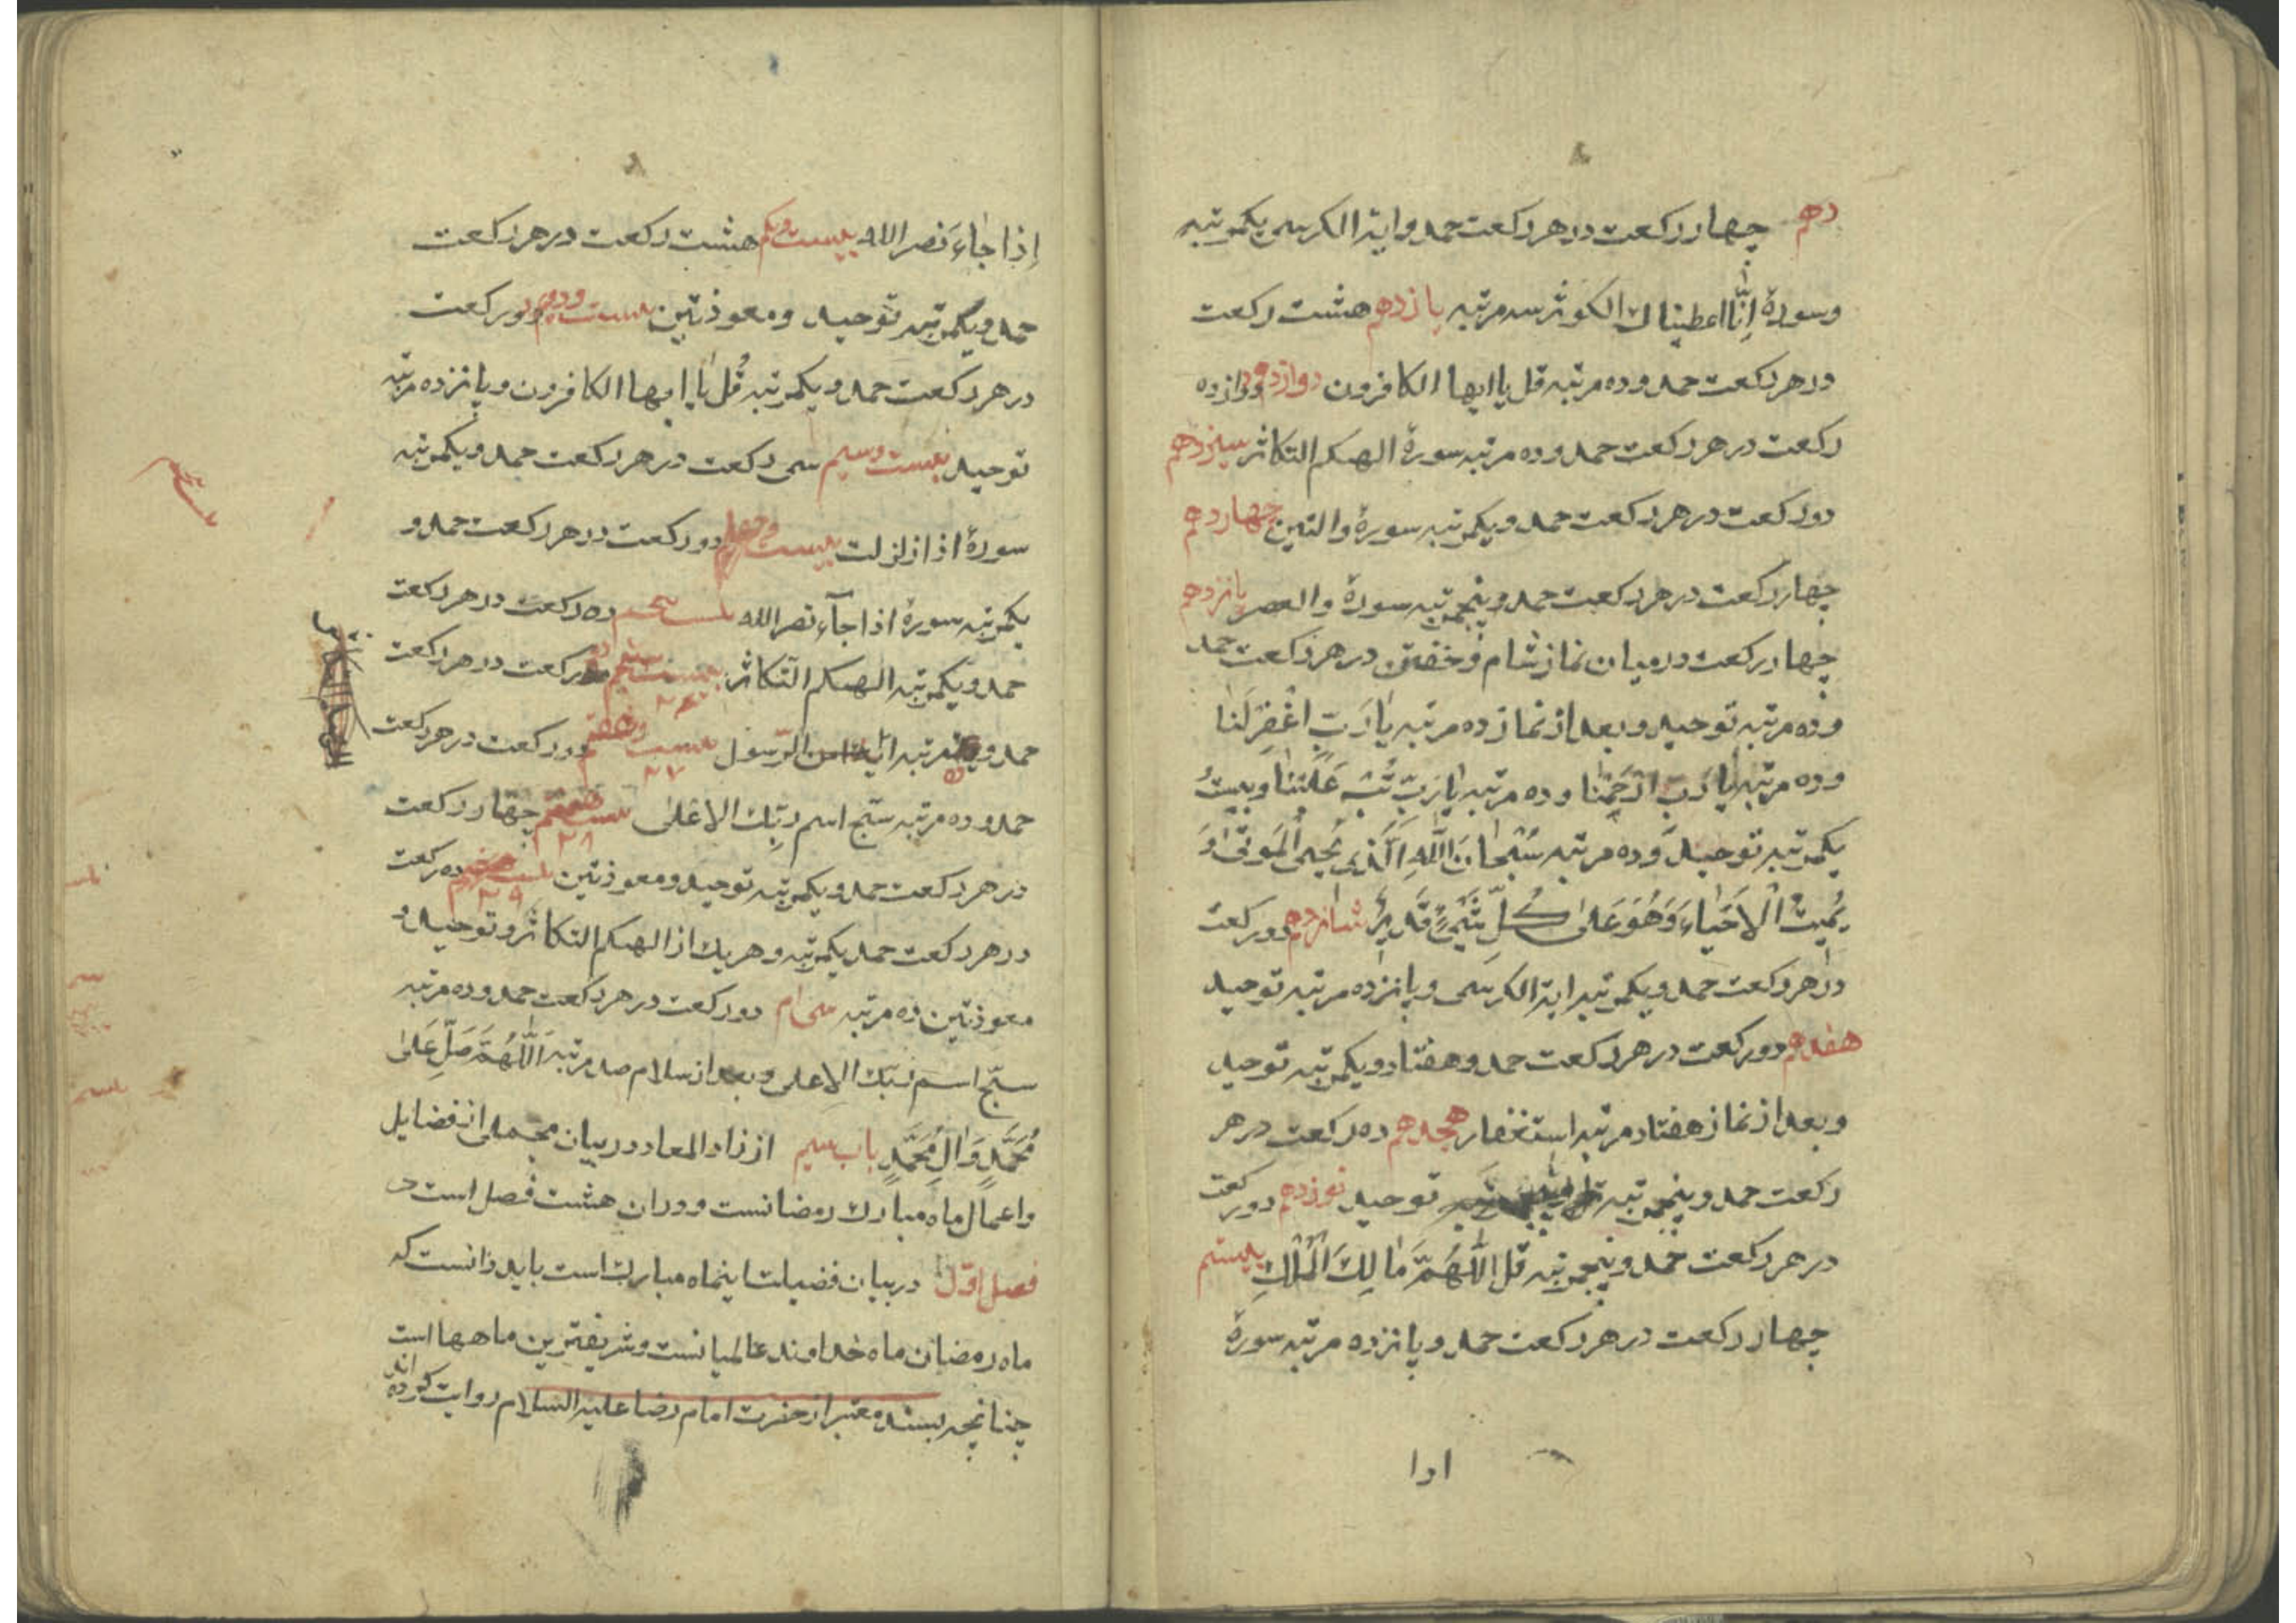 دهم چهار رکعت در هر رکعت حمد و ایة الکرسی یکمرتبه
وسورهٔ اِنّا اعطیناك الکوثر سه مرتبه یازدهم هشت رکعت
در هر رکعت حمد و ده مرتبه قل یا ایها الکافرون دوازدهم دوازده
رکعت در هر رکعت حمد و ده مرتبه سورهٔ الهیکم التکاثر سیزدهم
دو رکعت در هر رکعت حمد و یکمرتبه سورهٔ والتین چهاردهم
چهار رکعت در هر رکعت حمد و پنجمرتبه سورهٔ والعصر پانزدهم
چهار رکعت در میان نماز شام و خفتن در هر رکعت حمد
و ده مرتبه توحید و بعد از نماز ده مرتبه یٰا رَبِّ اغْفِرْ لَنٰا
و ده مرتبه یٰا رَبِّ ارْحَمْنٰا و ده مرتبه یٰا رَبِّ تُبْ عَلَیْنٰا و بیست
یکمرتبه توحید و ده مرتبه سُبْحٰانَ اللّٰهِ الَّذی یُحْیی الْمَوْتیٰ وَ
یُمیتُ الْاَحْیٰاءَ وَهُوَ عَلیٰ کُلِّ شَیْءٍ قَدیرٌ شانزدهم دو رکعت
در هر رکعت حمد و یکمرتبه ایة الکرسی و پانزده مرتبه توحید
هفدهم دو رکعت در هر رکعت حمد و هفتاد و یکمرتبه توحید
و بعد از نماز هفتاد مرتبه استغفار هجدهم ده رکعت در هر
رکعت حمد و پنجمرتبه توحید نوزدهم دو رکعت
در هر رکعت حمد و پنجمرتبه قل اللّٰهُمَّ مٰالِكَ الْمُلْكِ بیستم
چهار رکعت در هر رکعت حمد و پانزده مرتبه سورهٔ
اذا
اِذا جٰاءَ نصر الله بیست ویکم هشت رکعت در هر رکعت
حمد و یکمرتبه توحید و معوذتین بیست ودویم دو رکعت
در هر رکعت حمد و یکمرتبه قُل یٰا ایها الکافرون و پانزده مرتبه
توحید بیست وسیم سی رکعت در هر رکعت حمد و یکمرتبه
سورهٔ اذا زلزلت بیست وچهارم دو رکعت در هر رکعت حمد و
یکمرتبه سورهٔ اذا جآء نصر الله بیست پنجم ده رکعت در هر رکعت
حمد و یکمرتبه الهیکم التکاثر بیست ششم رکعت در هر رکعت
حمد و ده مرتبه امن الرّسول بیست وهفتم دو رکعت در هر رکعت
۲۷
حمد و ده مرتبه سبّح اسم ربّك الاعلیٰ چهار رکعت
۲۸
در هر رکعت حمد و یکمرتبه توحید و معوذتین ده رکعت
۲۹
در هر رکعت حمد یکمرتبه و هر یك از الهیکم التکاثر و توحید و
معوذتین ده مرتبه سی ام دو رکعت در هر رکعت حمد و ده مرتبه
سبّح اسم ربّك الاعلی و بعد از سلام صد مرتبه اَللّٰهُمَّ صَلِّ عَلیٰ
مُحَمَّدٍ وَاٰلِ مُحَمَّدٍ باب سیم از زاد المعاد در بیان مجملی از فضایل
و اعمال ماه مبارك رمضانست و در ان هشت فصل است
فصل اوّل در بیان فضیلت اینماه مبارك است باید دانست که
ماه رمضان ماه خداوند عالمیانست و شریفترین ماهها است
چنانچه بسند معتبر از حضرت امام رضا علیه السلام روایت کرده اند